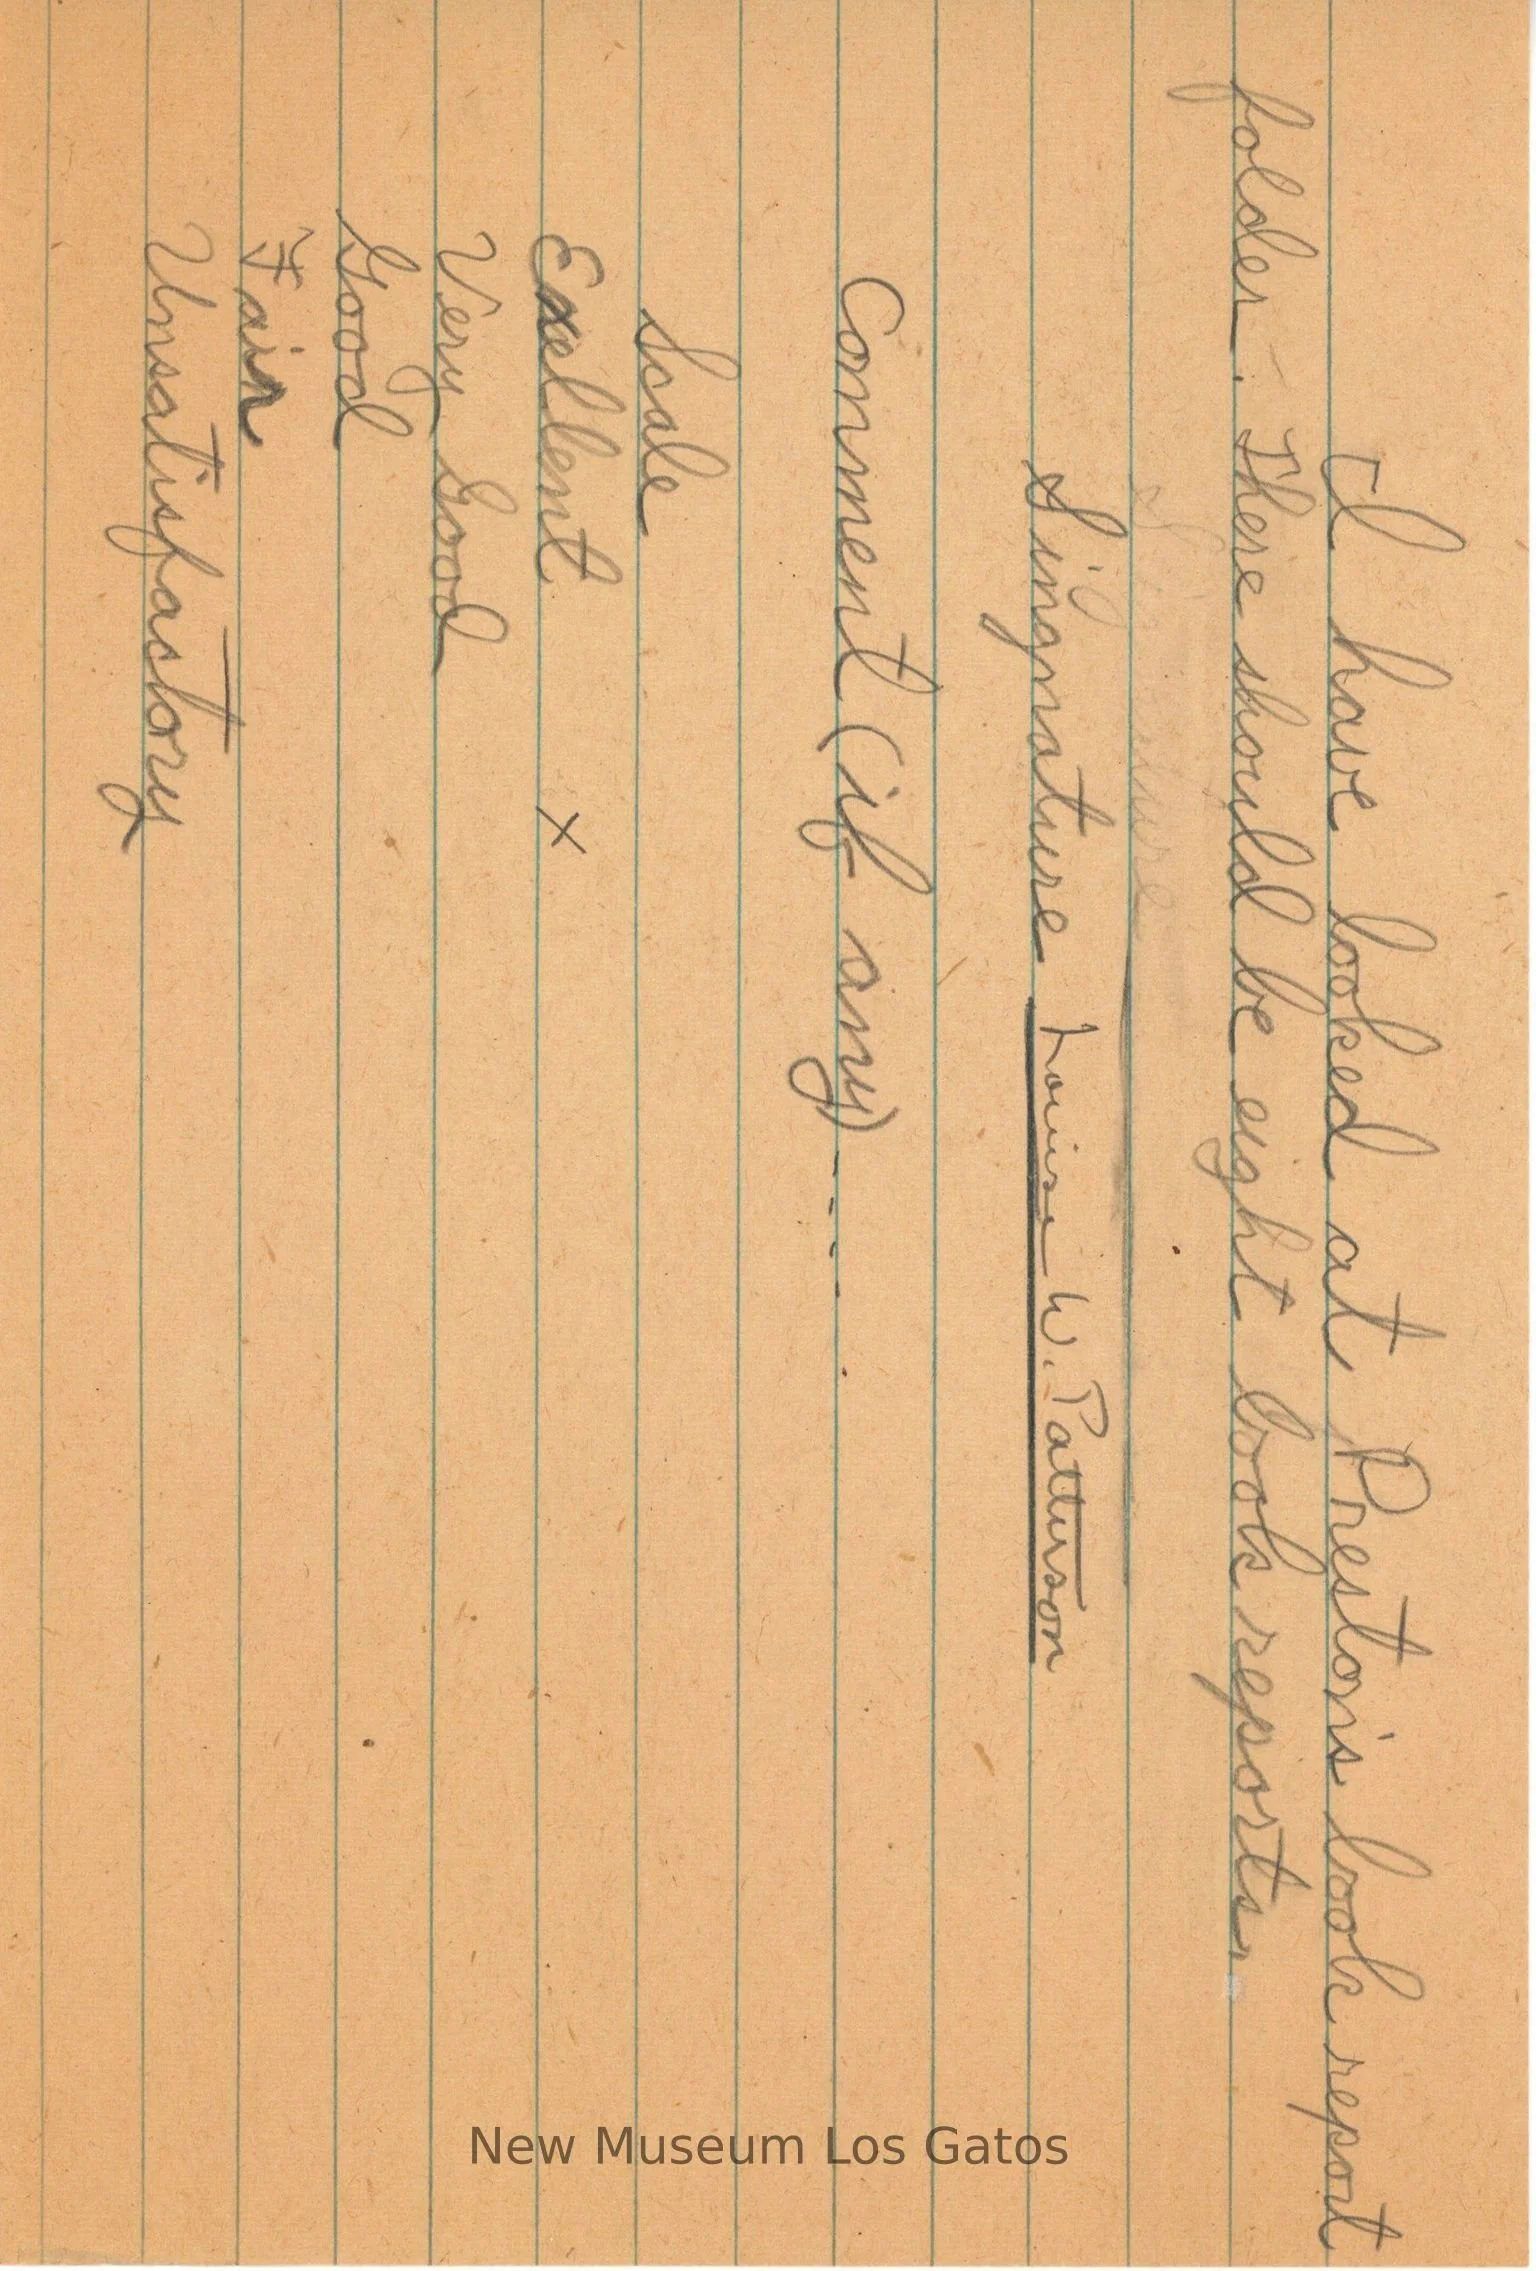 I have looked at Preston's book report
folder. There should be eight book reports.
Singnature Louise W. Patterson
Comment (if any) ----
Scale
Exellent x
Very Good
Good
Fair
Unsatisfactory
New Museum Los Gatos